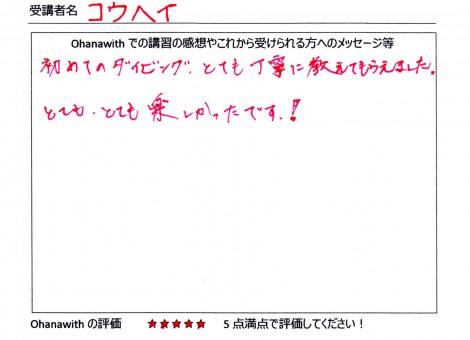 受講者名 コウヘイ
Ohanawith での講習の感想やこれから受けられる方へのメッセージ等
初めてのダイビング、とても丁寧に教えてもらえました。
とても、とても楽しかったです！
Ohanawith の評価 ★★★★★ 5点満点で評価してください！